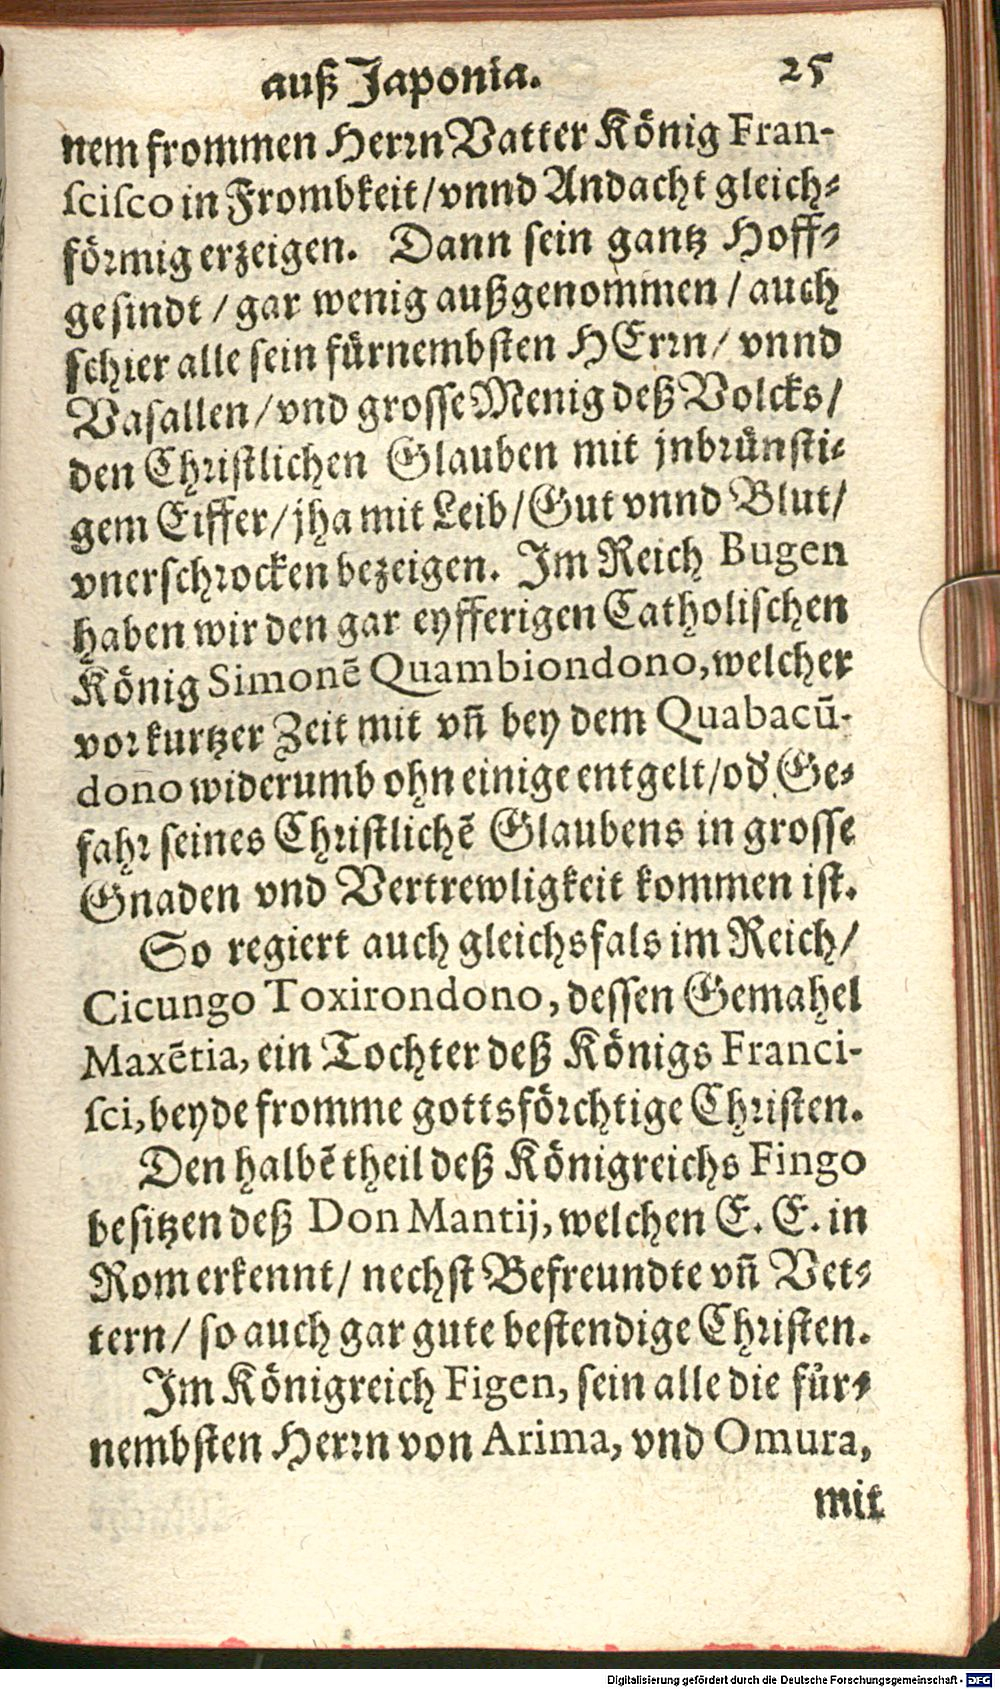 auß Japonia. 25
nem frommen Herrn Vatter König Fran-
scisco in Frombkeit/vnnd Andacht gleich-
förmig erzeigen. Dann sein gantz Hoff-
gesindt / gar wenig außgenommen / auch
schier alle sein fürnembsten HErrn/ vnnd
Vasallen/vnd grosse Menig deß Volcks/
den Christlichen Glauben mit jnbrünsti-
gem Eiffer/jha mit Leib/Gut vnnd Blut/
vnerschrocken bezeigen. Im Reich Bugen
haben wir den gar eyfferigen Catholischen
König Simonē Quambiondono, welcher
vor kurtzer Zeit mit vñ bey dem Quabacū-
dono widerumb ohn einige entgelt/od' Ge-
fahr seines Christlichē Glaubens in grosse
Gnaden vnd Vertrewligkeit kommen ist.
So regiert auch gleichsfals im Reich/
Cicungo Toxirondono, dessen Gemahel
Maxētia, ein Tochter deß Königs Franci-
sci, beyde fromme gottsförchtige Christen.
Den halbē theil deß Königreichs Fingo
besitzen deß Don Mantij, welchen E. E. in
Rom erkennt/ nechst Befreundte vñ Vet-
tern/ so auch gar gute bestendige Christen.
Im Königreich Figen, sein alle die für-
nembsten Herrn von Arima, vnd Omura,
mit
Digitalisierung gefördert durch die Deutsche Forschungsgemeinschaft - DFG